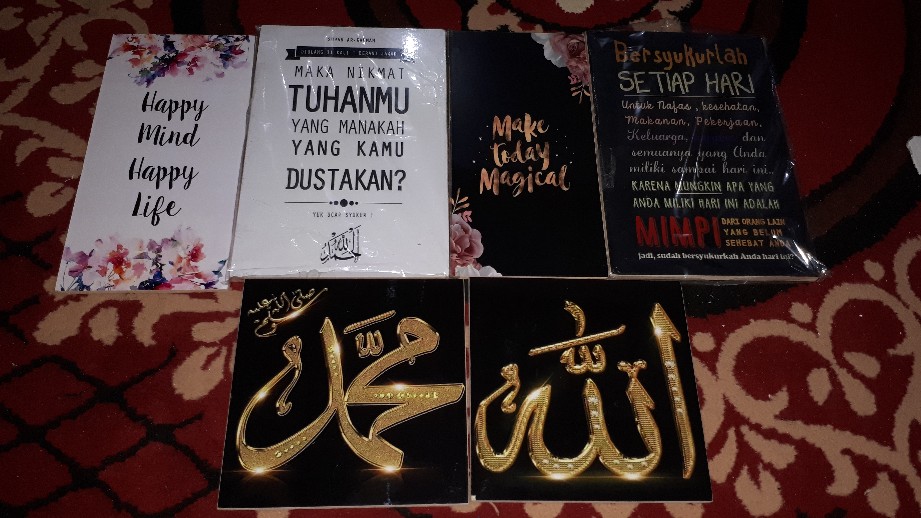 Happy
Mind
Happy
Life
SURAH AR-RAHMAN
MAKA NIKMAT
TUHANMU
YANG MANAKAH
YANG KAMU
DUSTAKAN?
YUK UCAP SYUKUR !
الحمد لله
Make
today
Magical
Bersyukurlah
SETIAP HARI
Untuk Nafas, kesehatan,
Makanan, Pekerjaan,
Keluarga, dan
semuanya yang Anda
miliki sampai hari ini...
KARENA MUNGKIN APA YANG
ANDA MILIKI HARI INI ADALAH
MIMPI DARI ORANG LAIN
YANG BELUM
SEHEBAT ANDA
jadi, sudah bersyukurkah Anda hari ini?
صلى الله عليه وسلم
محمد
الله